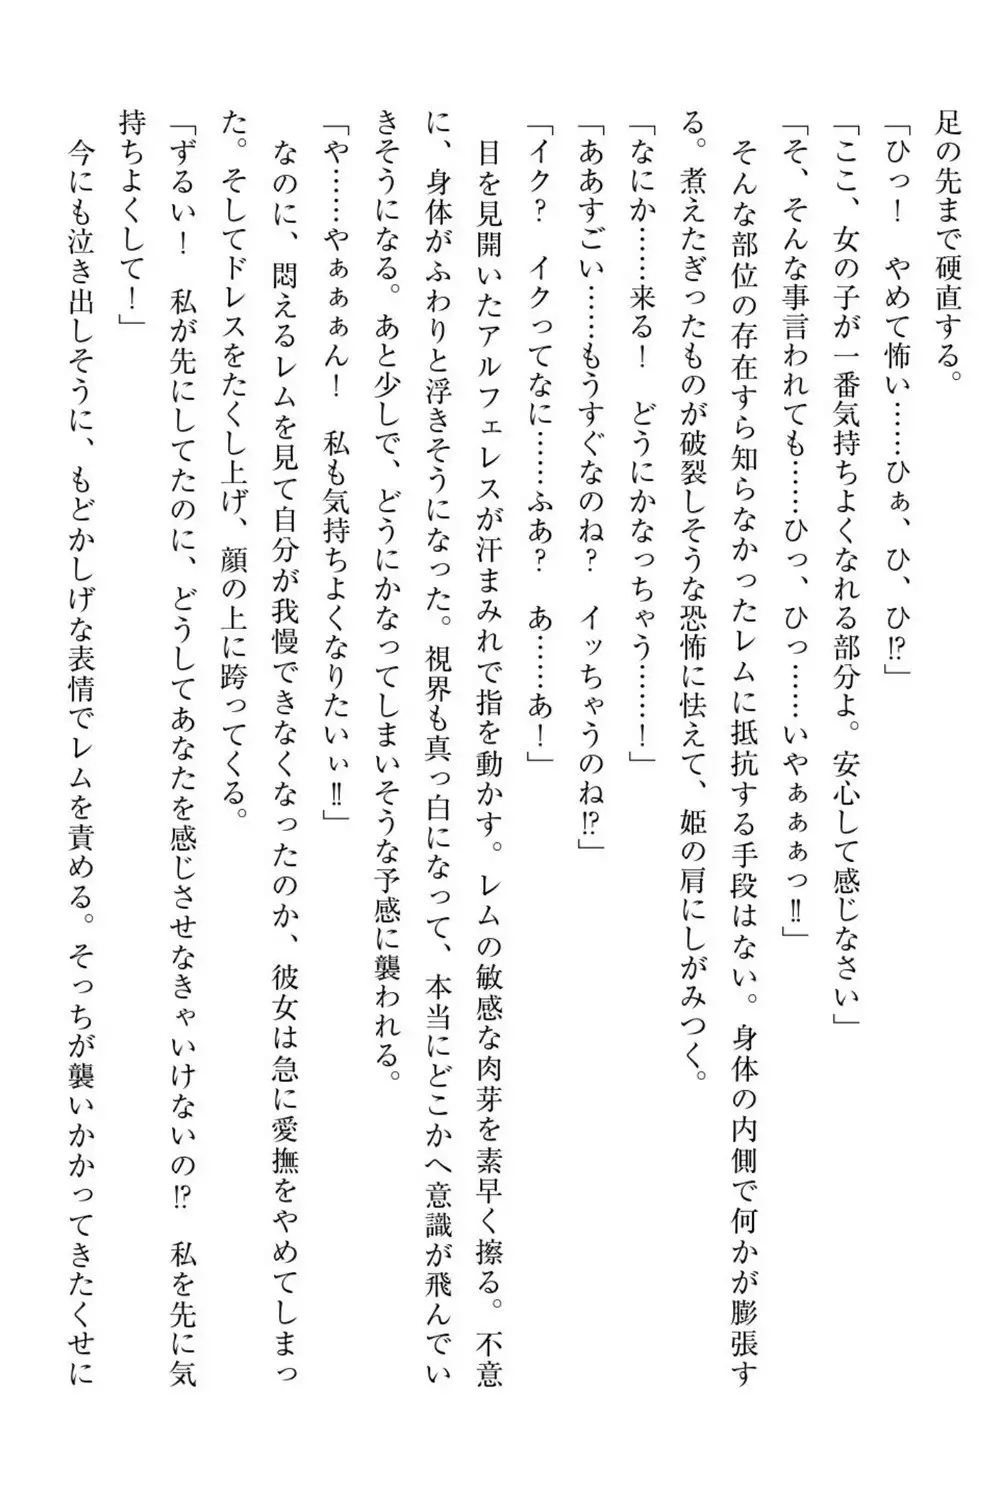 足の先まで硬直する。
「ひっ！　やめて怖い……ひぁ、ひ、ひ⁉」
「ここ、女の子が一番気持ちよくなれる部分よ。安心して感じなさい」
「そ、そんな事言われても……ひっ、ひっ……いやぁぁぁっ‼」
　そんな部位の存在すら知らなかったレムに抵抗する手段はない。身体の内側で何かが膨張す
る。煮えたぎったものが破裂しそうな恐怖に怯えて、姫の肩にしがみつく。
「なにか……来る！　どうにかなっちゃう……！」
「ああすごい……もうすぐなのね？　イッちゃうのね⁉」
「イク？　イクってなに……ふあ？　あ……あ！」
　目を見開いたアルフェレスが汗まみれで指を動かす。レムの敏感な肉芽を素早く擦る。不意
に、身体がふわりと浮きそうになった。視界も真っ白になって、本当にどこかへ意識が飛んでい
きそうになる。あと少しで、どうにかなってしまいそうな予感に襲われる。
「や……やぁぁぁん！　私も気持ちよくなりたいぃ‼」
　なのに、悶えるレムを見て自分が我慢できなくなったのか、彼女は急に愛撫をやめてしまっ
た。そしてドレスをたくし上げ、顔の上に跨ってくる。
「ずるい！　私が先にしてたのに、どうしてあなたを感じさせなきゃいけないの⁉　私を先に気
持ちよくして！」
　今にも泣き出しそうに、もどかしげな表情でレムを責める。そっちが襲いかかってきたくせに